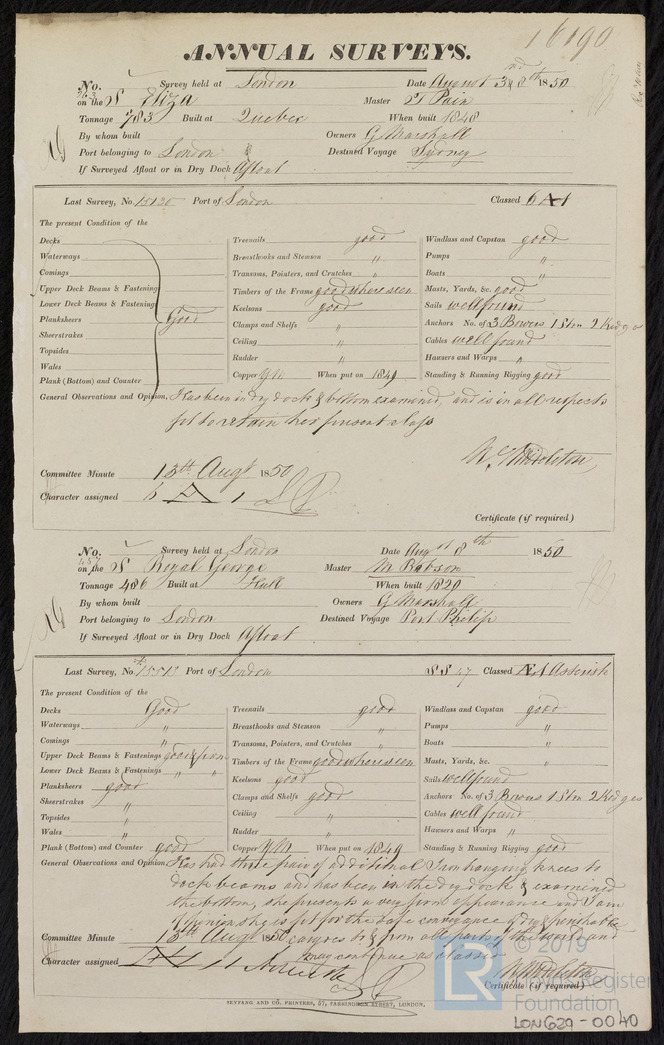 16190
ANNUAL SURVEYS.
No. Survey held at London Date August 3rd & 8th 1850
on the S Eliza Master T Pain
Tonnage 783 Built at Quebec When built 1848
By whom built Owners G Marshall
Port belonging to London Destined Voyage Sydney
If Surveyed Afloat or in Dry Dock Afloat
Last Survey, No. 15130 Port of London Classed 6 A 1
The present Condition of the
Decks
Waterways
Comings
Upper Deck Beams & Fastening
Lower Deck Beams & Fastening
Planksheers Good
Sheerstrakes
Topsides
Wales
Plank (Bottom) and Counter
Treenails good
Breasthooks and Stemson "
Transoms, Pointers, and Crutches "
Timbers of the Frame good where seen
Keelsons good
Clamps and Shelfs "
Ceiling "
Rudder "
Copper Y M When put on 1849
Windlass and Capstan good
Pumps "
Boats "
Masts, Yards, &c. good
Sails well found
Anchors No. of 3 Bowers 1 Stm 2 Kedges
Cables well found
Hawsers and Warps "
Standing & Running Rigging good
General Observations and Opinion, Has been in dry dock & bottom examined, and is in all respects
fit to retain her present class
Committee Minute 13th Augt 1850
Character assigned 6 A 1
Certificate (if required)
No. Survey held at London Date Augst 8th 1850
on the S Royal George Master M Robson
Tonnage 486 Built at Hull When built 1820
By whom built Owners G Marshall
Port belonging to London Destined Voyage Port Philip
If Surveyed Afloat or in Dry Dock Afloat
Last Survey, No. 15513 Port of London SS 47 Classed Æ1 Asterisk
The present Condition of the
Decks Good
Waterways "
Comings "
Upper Deck Beams & Fastenings good & firm
Lower Deck Beams & Fastenings " "
Planksheers good
Sheerstrakes "
Topsides "
Wales "
Plank (Bottom) and Counter good
Treenails good
Breasthooks and Stemson "
Transoms, Pointers, and Crutches "
Timbers of the Frame good where seen
Keelsons good
Clamps and Shelfs good
Ceiling "
Rudder "
Copper Y M When put on 1849
Windlass and Capstan good
Pumps "
Boats "
Masts, Yards, &c. "
Sails well found
Anchors No. of 3 Bowers 1 Stm 2 Kedges
Cables well found
Hawsers and Warps "
Standing & Running Rigging good
General Observations and Opinion, Has had three pair of additional Iron hanging knees to
deck beams and has been in the dry dock & examined
the bottom, she presents a very firm appearance and I am
of opinion she is fit for the safe conveyance of dry & perishable
Committee Minute 13th Augt 1850 cargoes to & from all parts of the world and
may continue as classed
Character assigned Æ 1 Asterisk
Certificate (if required)
SEYFANG AND CO. PRINTERS, 57, FARRINGDON STREET, LONDON.
© 2019
LR
Lloyd's Register
Foundation
LON629-0040